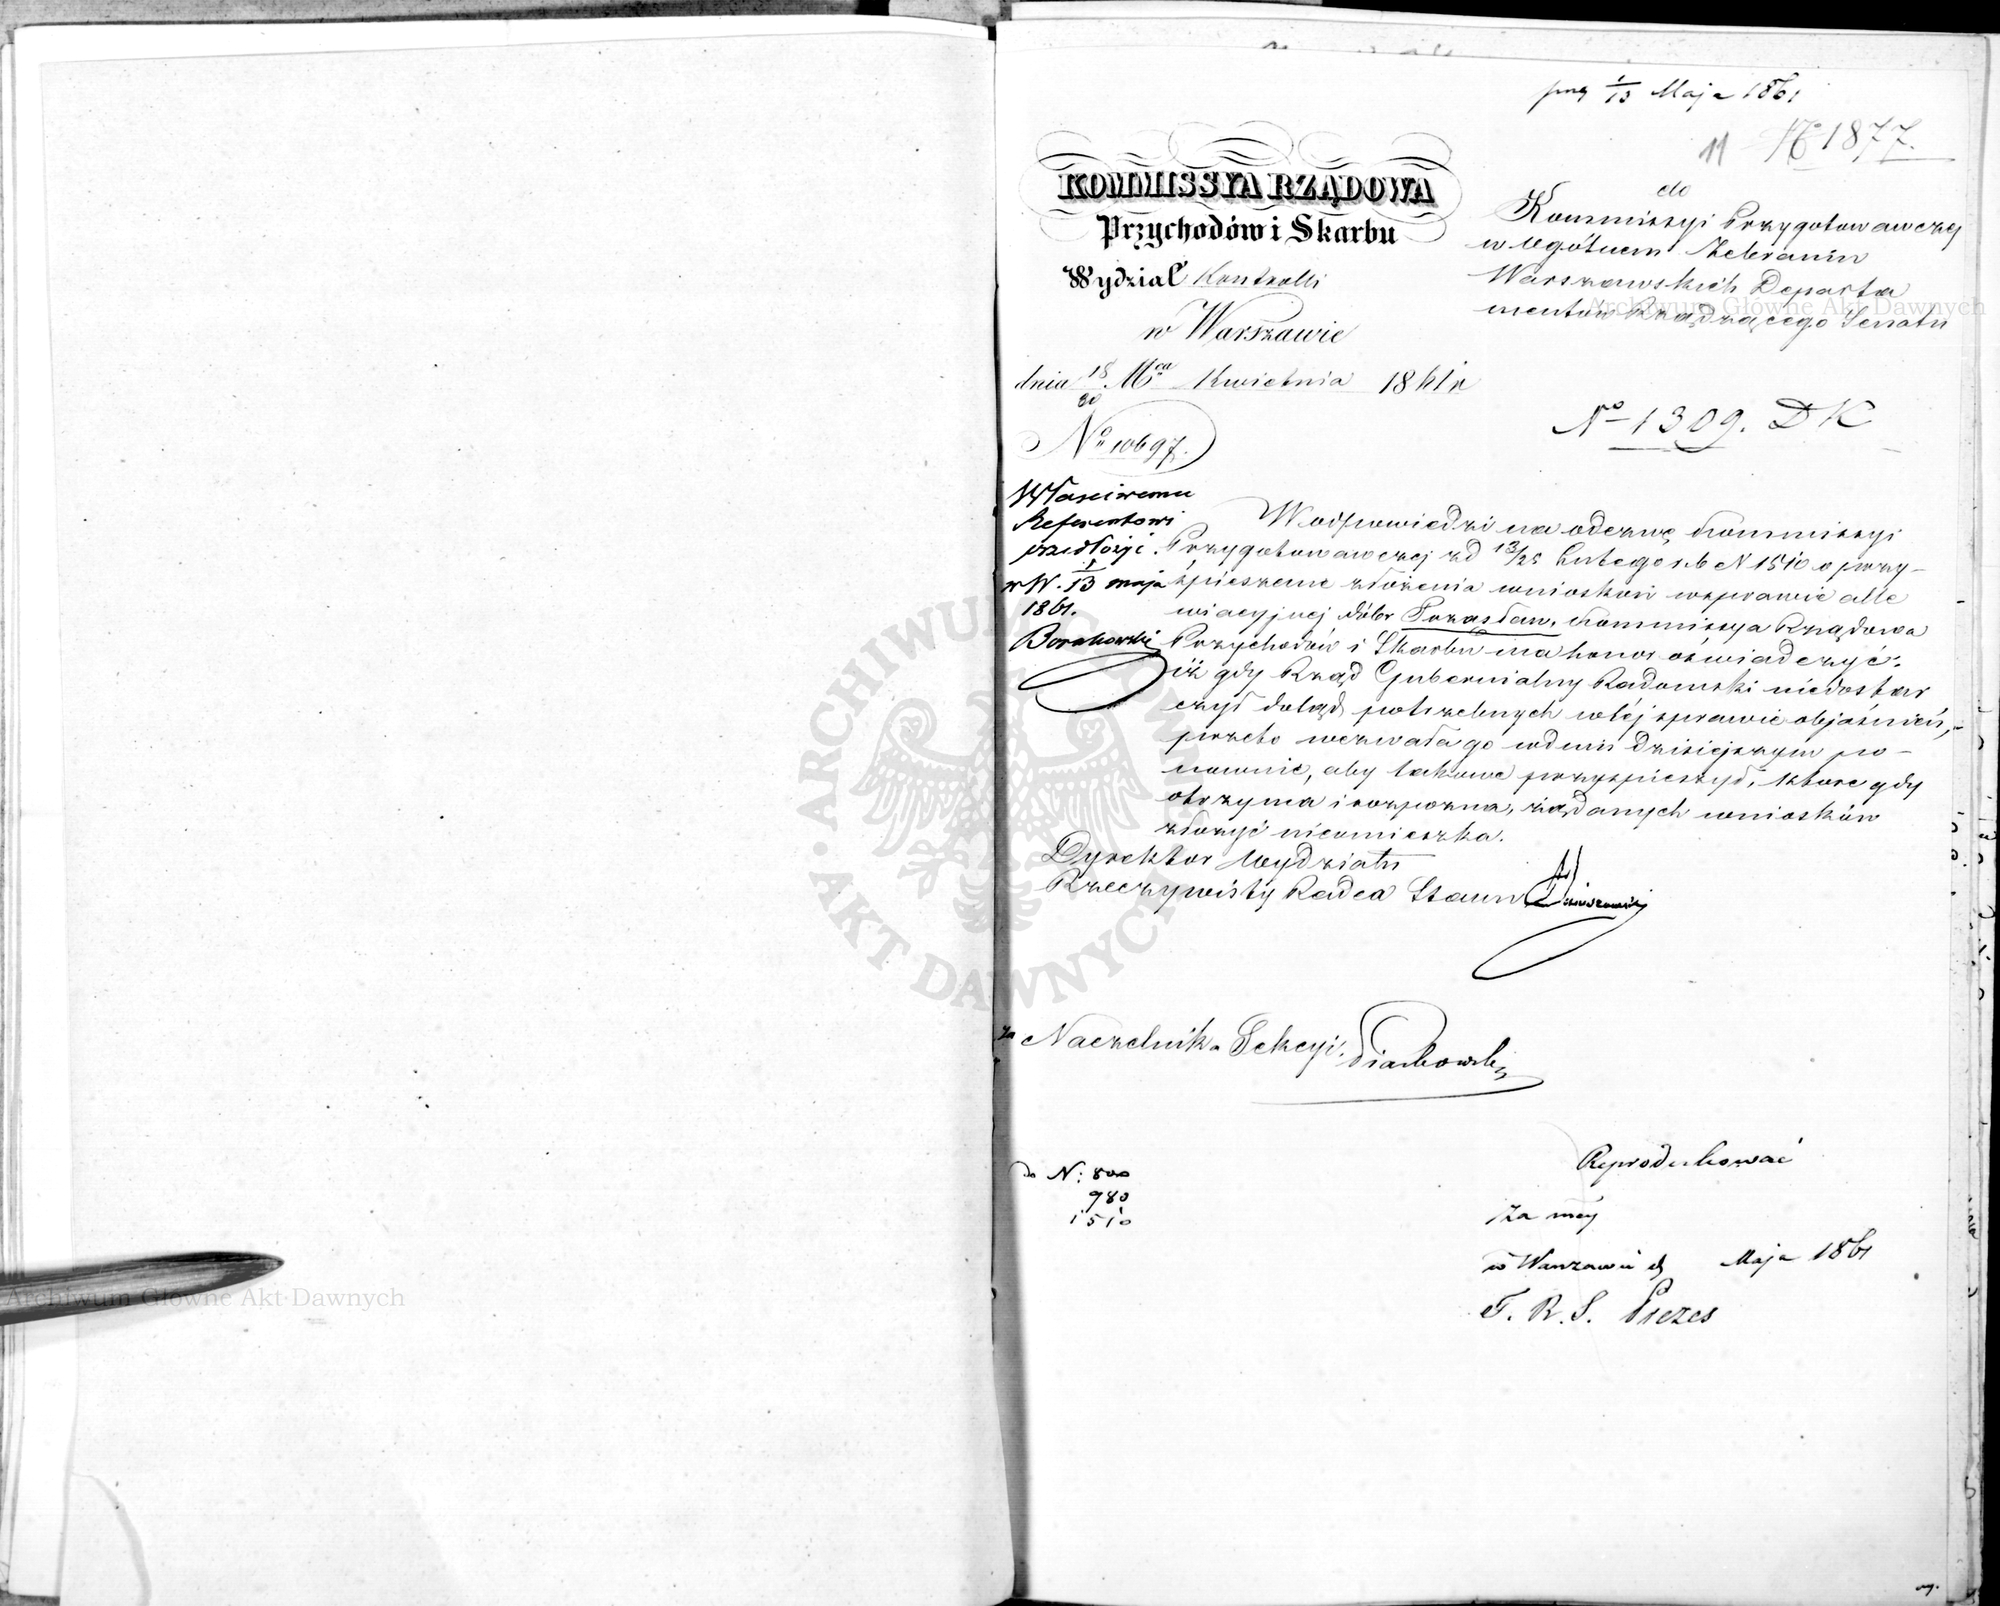 1/13 Maja 1861
11 № 1877.
KOMMISSYA RZĄDOWA
Przychodów i Skarbu
Wydział Kontrolli
w Warszawie
dnia 18/30 Mca Kwietnia 1861 r
No 10697.
do
Kommissyi Przygotowawczej
w Ogólnem Zebraniu
Warszawskich Departa
mentów Rządzącego Senatu
No 1309. DK
Właściwemu
Referentowi
przedłożyć.
w W. 1/13 maja
1861.
W odpowiedzi na odezwę Kommissyi
Przygotowawczej zd 13/25 Lutego r.b N 1510 o przy-
śpieszenie złożenia wniosków w sprawie alle
wiacyjnej dóbr Kommissya Rządowa
Przychodów i Skarbu ma honor oświadczyć.
iż gdy Rząd Gubernialny Radomski niedostar
czył dotąd potrzebnych w tój sprawie objaśnień,
przeto wezwała go w dniu dzisiejszym po-
nownie, aby takowe przyspieszył, które gdy
otrzyma i rozpozna, żądanych wniosków
złożyć nieomieszka.
Dyrektor Wydziału
Rzeczywisty Radca Stanu
za Naczelnika Sekcyi.
do N: 800
980
1510
Reprodukować
za mcy
w Warszawie d Maja 1861
T. R. S. Prezes
ARCHIWUM GŁÓWNE AKT DAWNYCH
Archiwum Główne Akt Dawnych
Archiwum Główne Akt Dawnych